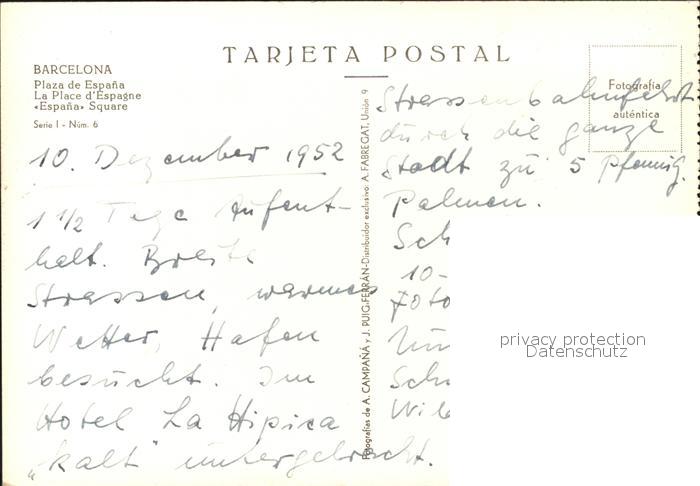 TARJETA POSTAL
BARCELONA
Plaza de España
La Place d'Espagne
«España» Square
Serie I - Núm. 6
Fotografía
auténtica
Fotografías de A. CAMPAÑÁ y J. PUIG-FERRÁN-Distribuidor exclusivo: A. FABREGAT, Unión 9
10. Dezember 1952
1 1/2 Tage Aufent-
halt. Breite
Strassen, warmes
Wetter, Hafen
besucht. Im
Hotel La Hipica
„kalt" untergebracht.
Strassenbahnfahrt
durch die ganze
Stadt zu 5 Pfennig.
Palmen.
Sch
10-
Foto
Sch
privacy protection
Datenschutz